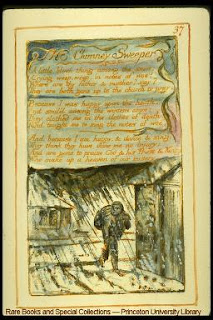 37
The Chimney Sweeper
A little black thing among the snow:
Crying weep, weep, in notes of woe!
Where are thy father & mother? say?
They are both gone up to the church to pray.
Because I was happy upon the heath,
And smil'd among the winters snow:
They clothed me in the clothes of death,
And taught me to sing the notes of woe.
And because I am happy, & dance & sing,
They think they have done me no injury:
And are gone to praise God & his Priest & King
Who make up a heaven of our misery.
Rare Books and Special Collections — Princeton University Library